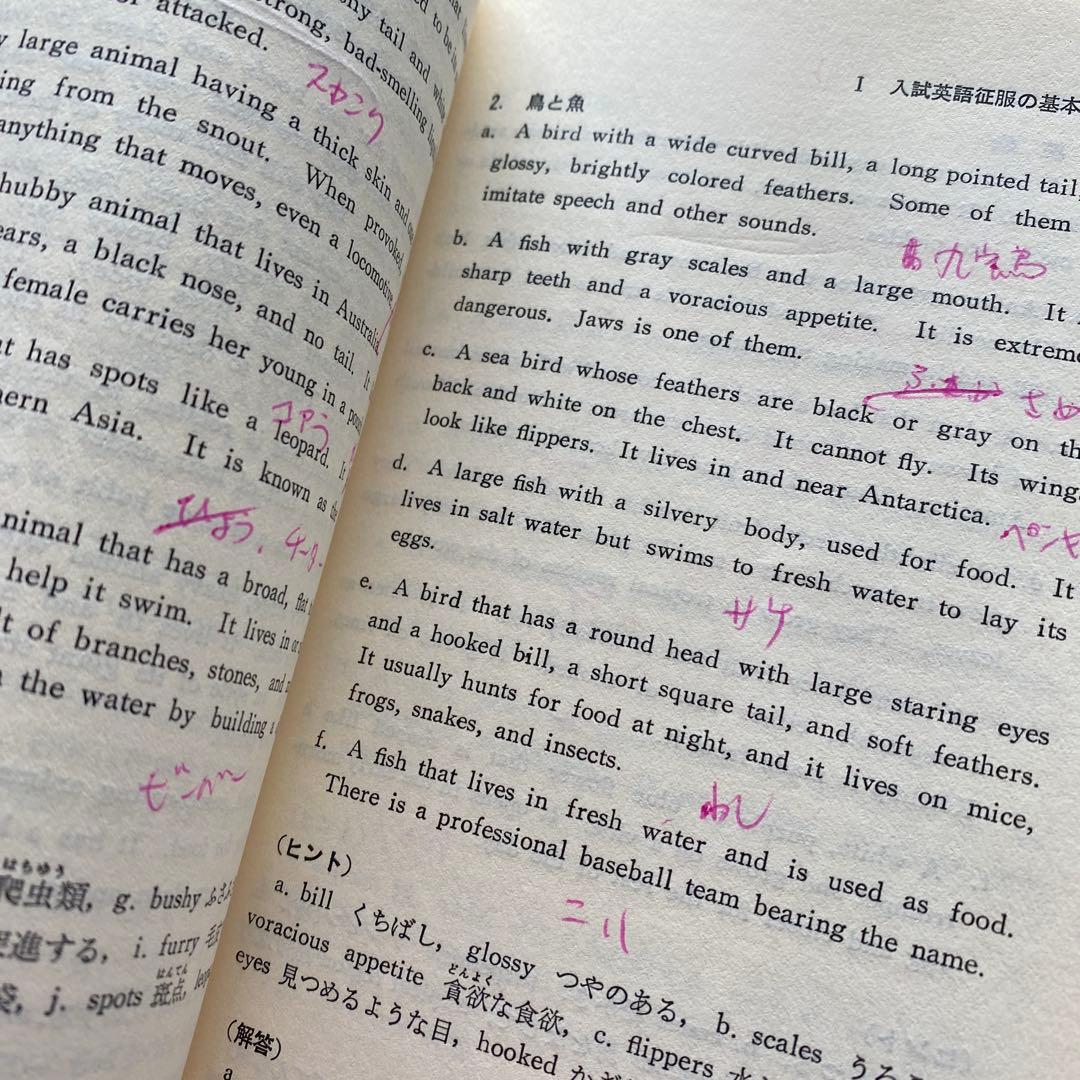 attacked.
strong, bad-smelling
large animal having a thick skin and
スカンク
ing from the snout. When provoked,
anything that moves, even a locomotive,
chubby animal that lives in Australia,
ears, a black nose, and no tail. It
female carries her young in a
コアラ
has spots like a leopard. It
ern Asia. It is known as the
ひょう、チーター
animal that has a broad, flat
help it swim. It lives in
of branches, stones, and
the water by building a
ビーバー
爬虫類, g. bushy
はちゆう
進する, i. furry
j. spots 斑点,
はんてん
I 入試英語征服の基本
2. 鳥と魚
a. A bird with a wide curved bill, a long pointed tail,
glossy, brightly colored feathers. Some of them
imitate speech and other sounds.
九官鳥
b. A fish with gray scales and a large mouth. It
sharp teeth and a voracious appetite. It is extreme
dangerous. Jaws is one of them.
さめ
c. A sea bird whose feathers are black or gray on the
back and white on the chest. It cannot fly. Its wings
look like flippers. It lives in and near Antarctica.
ペンギ
d. A large fish with a silvery body, used for food. It
lives in salt water but swims to fresh water to lay its
eggs.
サケ
e. A bird that has a round head with large staring eyes
and a hooked bill, a short square tail, and soft feathers.
It usually hunts for food at night, and it lives on mice,
frogs, snakes, and insects.
わし
f. A fish that lives in fresh water and is used as food.
There is a professional baseball team bearing the name.
(ヒント)
a. bill くちばし, glossy つやのある, b. scales うろこ
voracious appetite 貪欲な食欲, c. flippers
どんよく
eyes 見つめるような目, hooked かぎ
(解答)
a